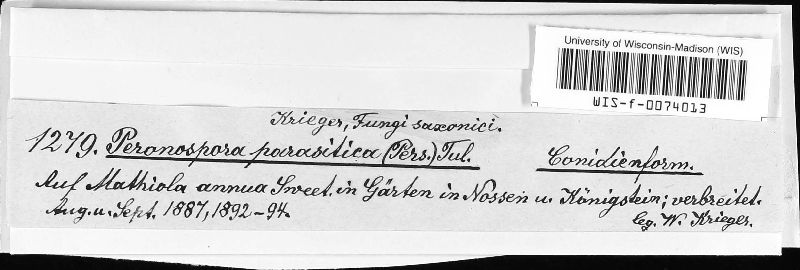 University of Wisconsin-Madison (WIS)
WIS-f-0074013
Krieger, Fungi saxonici.
1279. Peronospora parasitica (Pers.) Tul. Conidienform.
Auf Mathiola annua Sweet. in Gärten in Nossen u. Königstein; verbreitet.
Aug. u. Sept. 1887, 1892-94.
leg. W. Krieger.